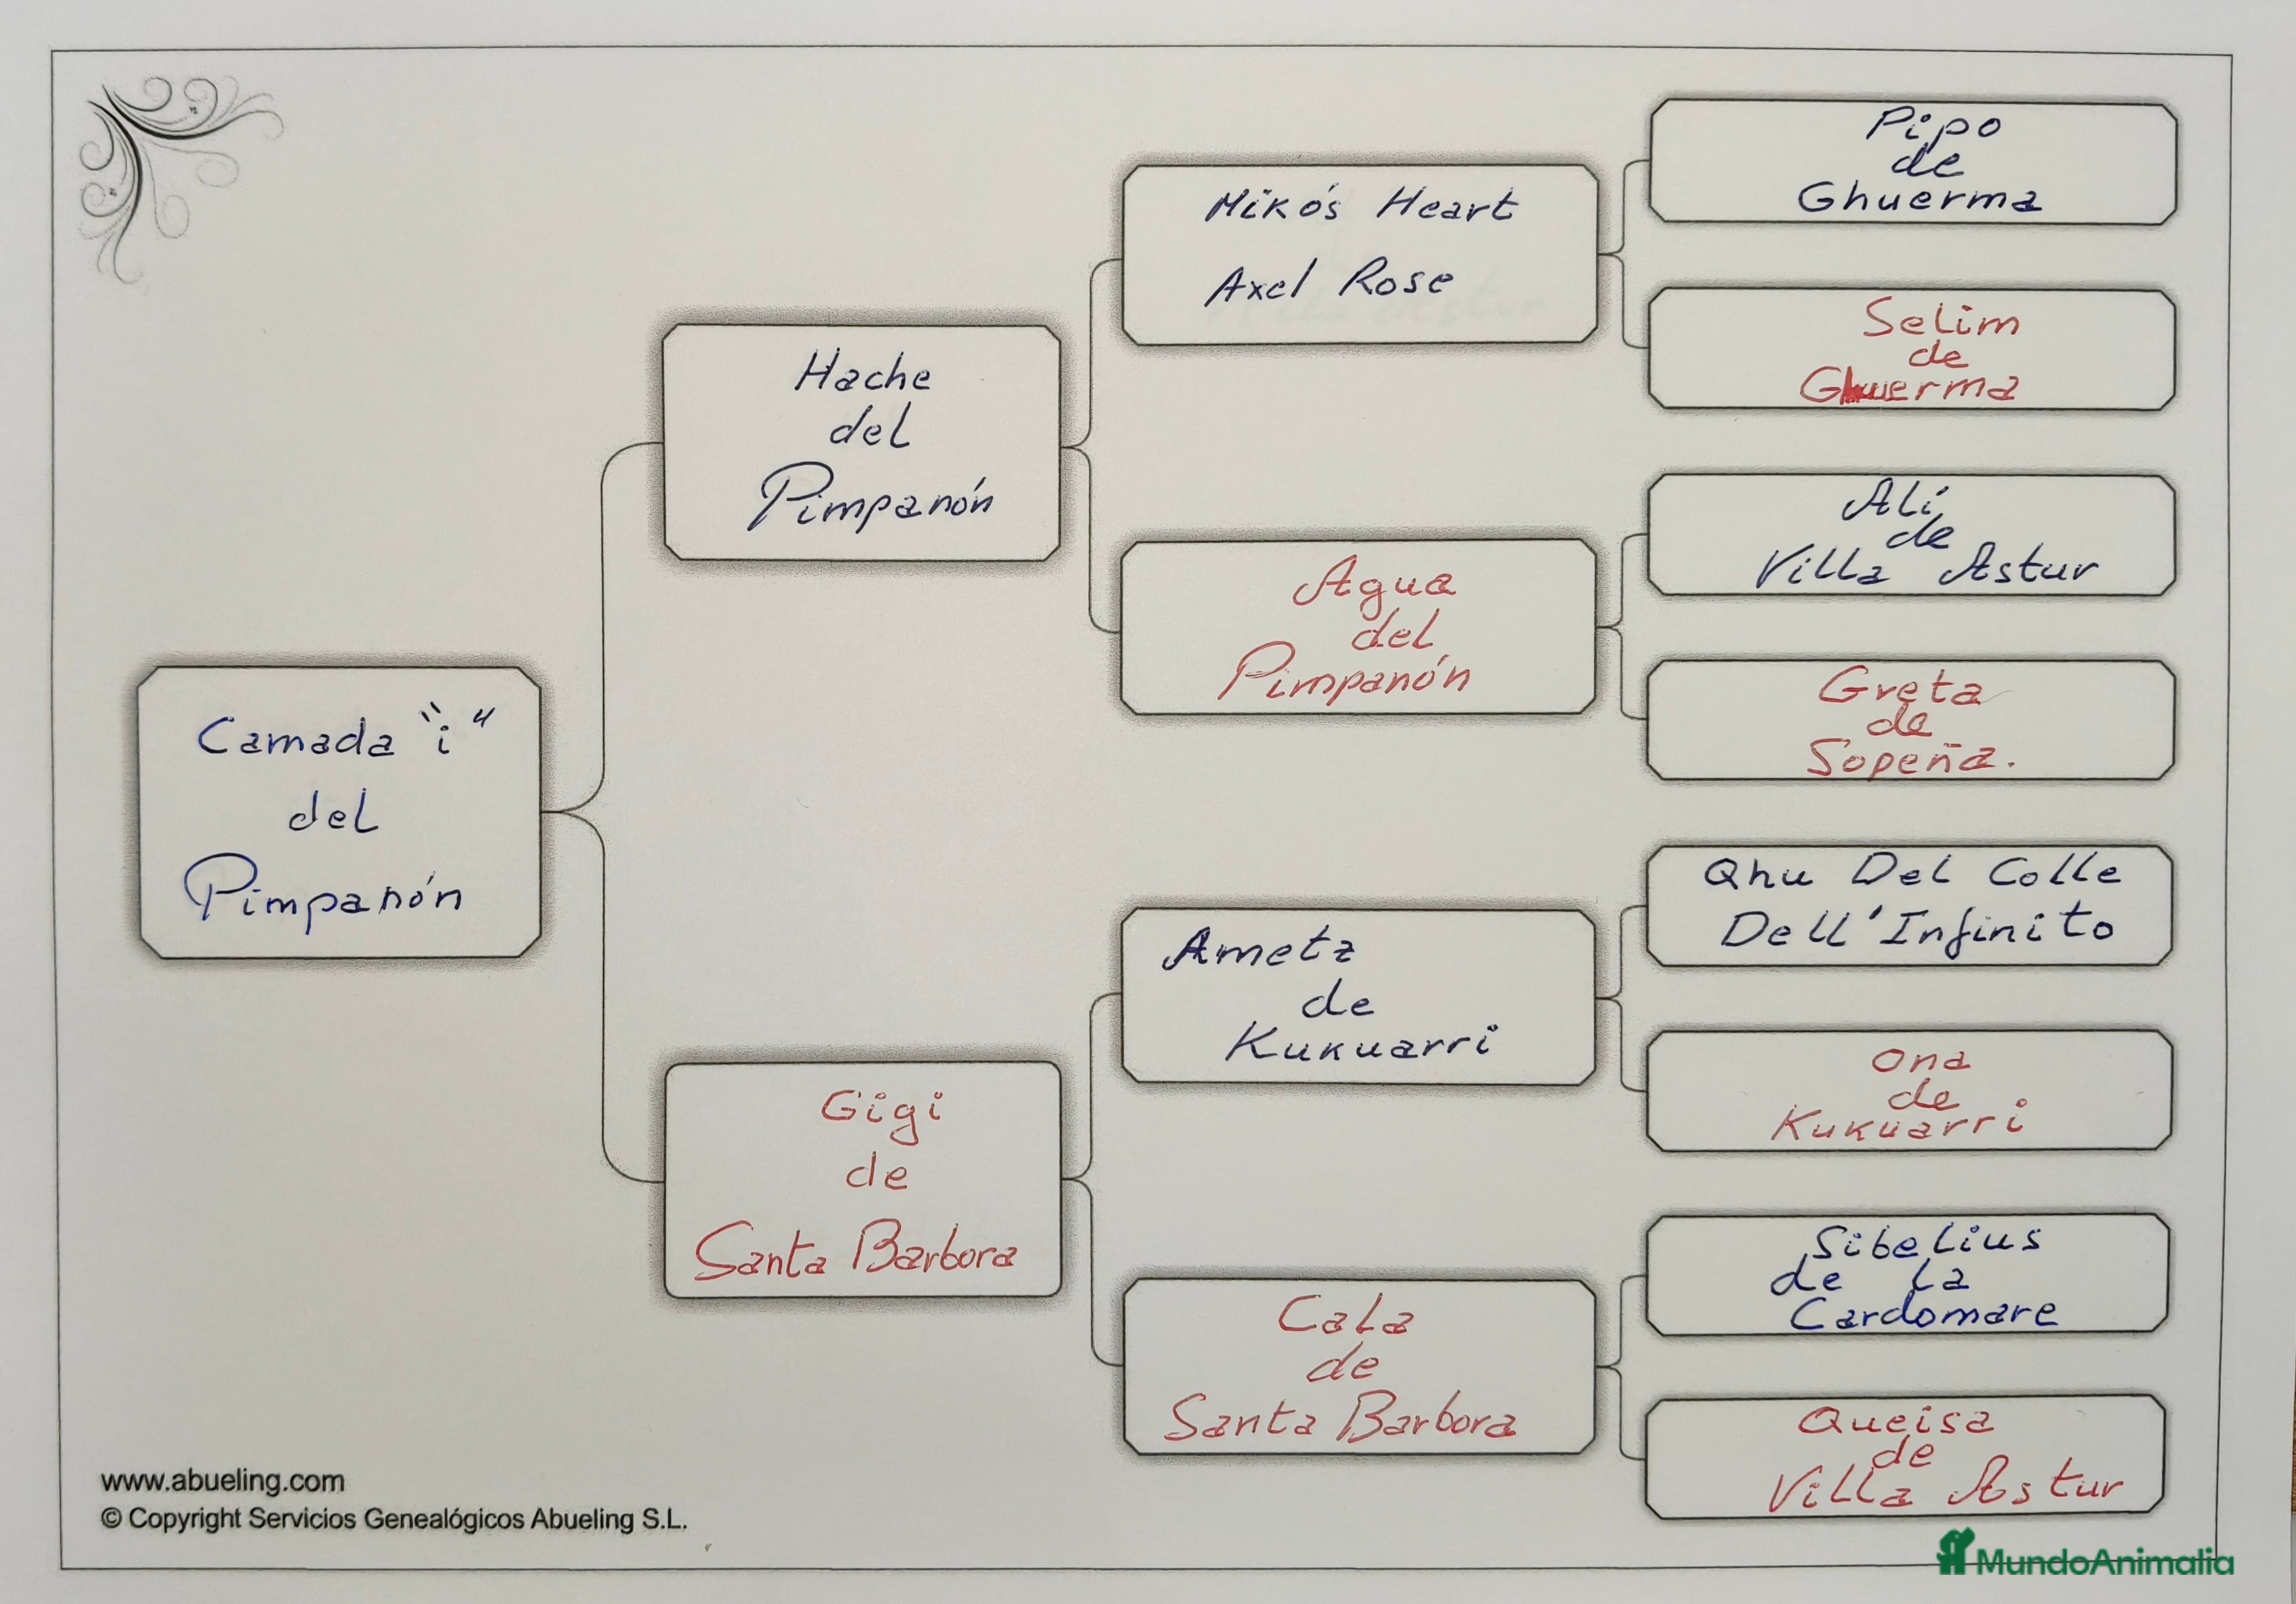 Pipo
de
Ghuerma
Mikó's Heart
Axel Rose
Selim
de
Ghuerma
Hache
del
Pimpanón
Alí
de
Villa Astur
Agua
del
Pimpanón
Greta
de
Sopeña.
Camada "i"
del
Pimpanón
Qhu Del Colle
Dell'Infinito
Ametz
de
Kukuarri
Ona
de
Kukuarri
Gigi
de
Santa Barbora
Sibelius
de la
Cardomare
Cala
de
Santa Barbora
Queisa
de
Villa Astur
www.abueling.com
© Copyright Servicios Genealógicos Abueling S.L.
MundoAnimalia